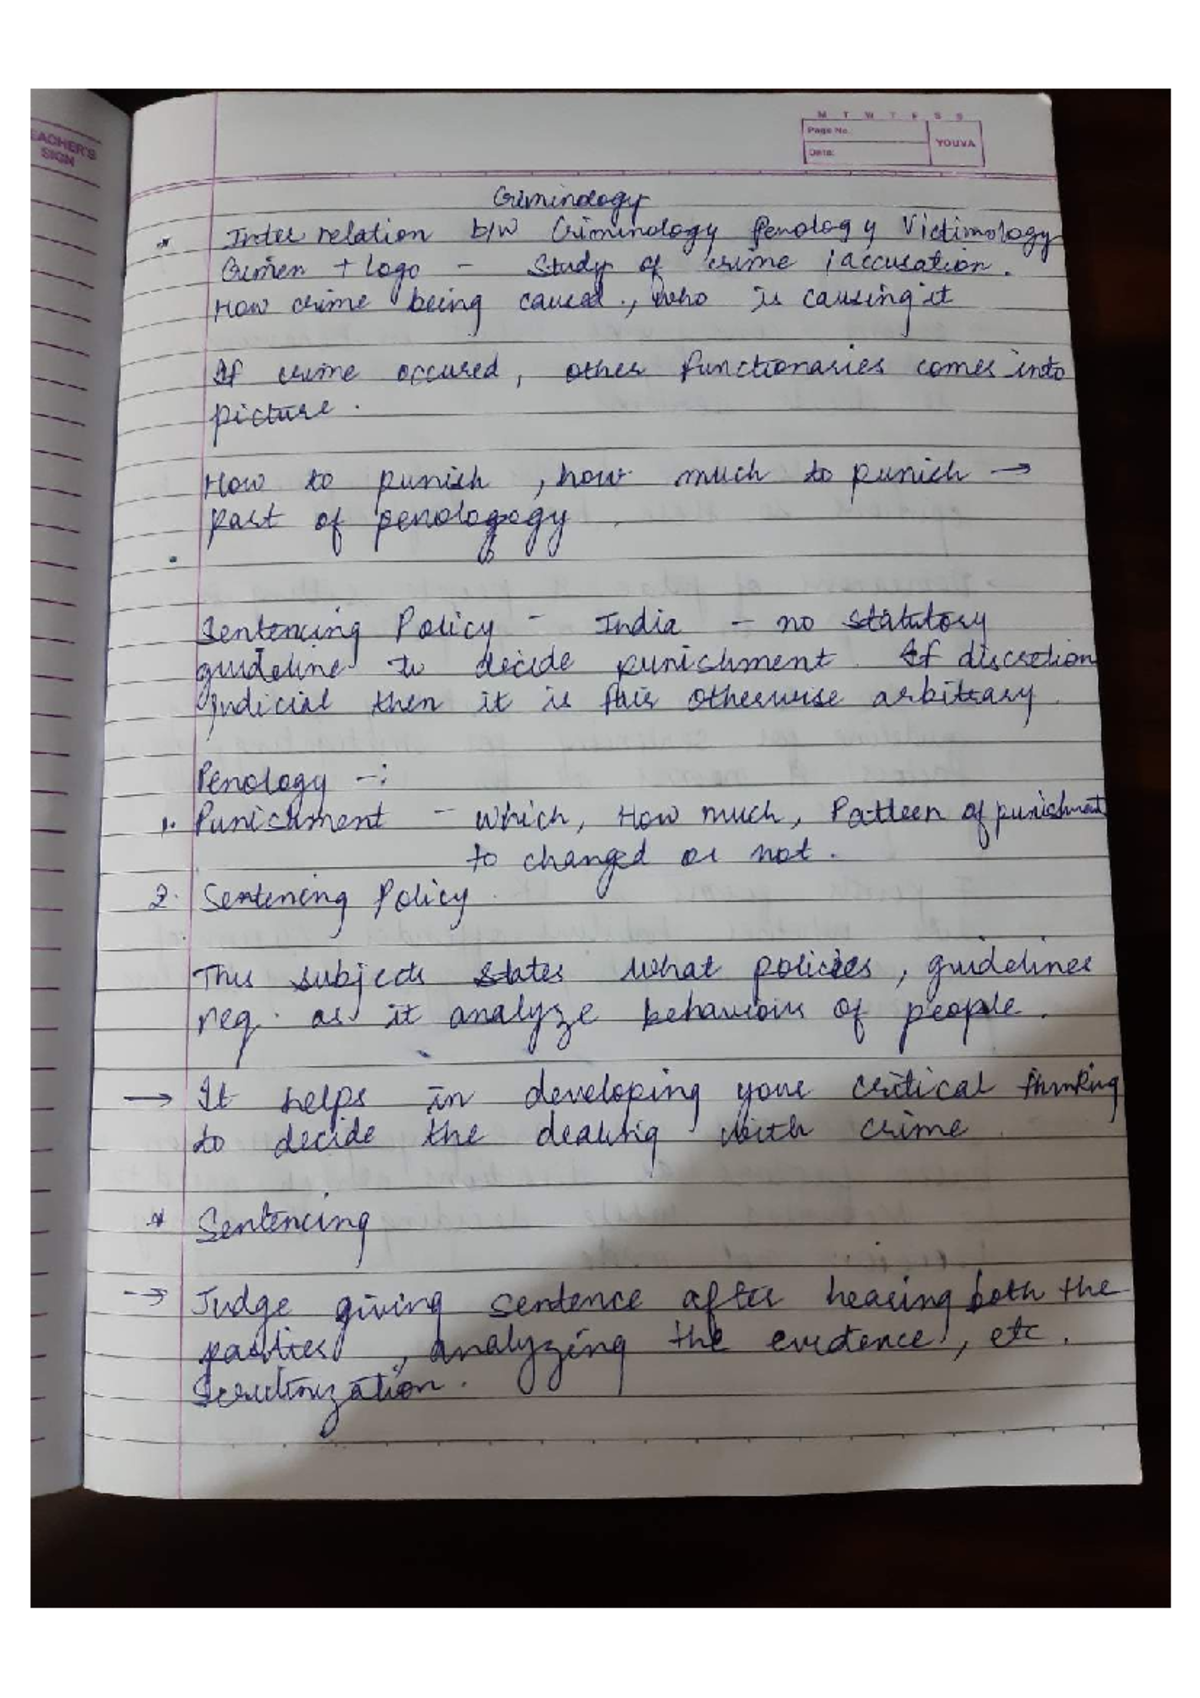 EACHER'S
SIGN
M T W T F S S
Page No.
YOUVA
Date:
Criminology
* Inter relation b/w Criminology Penology Victimology
Crimen + Logo - Study of crime / accusation.
How crime being caused, who is causing it
If crime occured, other functionaries comes into
picture.
How to punish, how much to punish →
part of penologogy
Sentencing Policy - India - no statutory
guideline to decide punishment. If discretion
judicial then it is fair otherwise arbitrary.
Penology -:
1. Punishment - which, How much, Patteen of punishment
to changed or not.
2. Sentencing Policy.
This subjects states what policies, guidelines
req. as it analyze behaviours of people.
→ It helps in developing your critical thinking
to decide the dealing with crime.
* Sentencing
→ Judge giving sentence after hearing both the
parties, analyzing the evidence, etc.
Scrutinization.